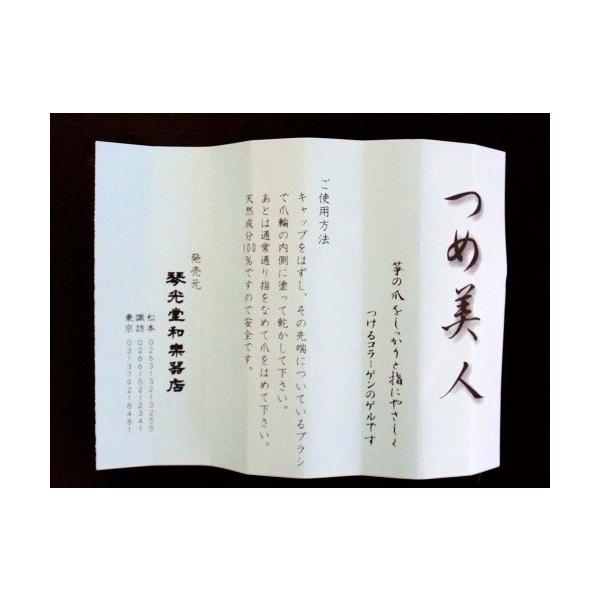 つめ美人
箏の爪をしっかりと指にやさしく
つけるコラーゲンのゲルです
ご使用方法
キャップをはずし、その先端についているブラシ
で爪輪の内側に塗って乾かして下さい。
あとは通常通り指をなめて爪をはめて下さい。
天然成分100％ですので安全です。
発売元
琴光堂和楽器店
松本 0263-32-3255
諏訪 0266-52-2341
東京 03-3792-8481